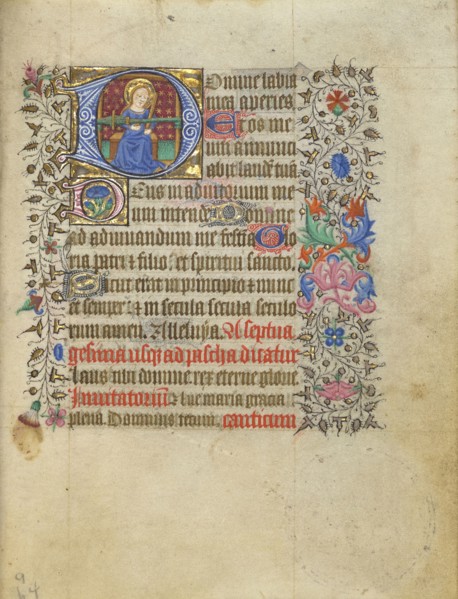 Domine labia
mea aperies
Et os me
um annunci
abit laudē tuā
Deus in adiutorium me
um intende Domine
ad adiuuandum me festīa Glo
ria patri & filio: et spiritui sancto.
Sicut erat in principio & nunc
et semper: & in secula seculo
rum amen. Alleluya. A septua
gesima usq; ad pascha dicatur
Laus tibi domine rex eterne glorie.
Inuitatoriū Aue maria gracia
plena. Dominus tecum. canticum
9
64